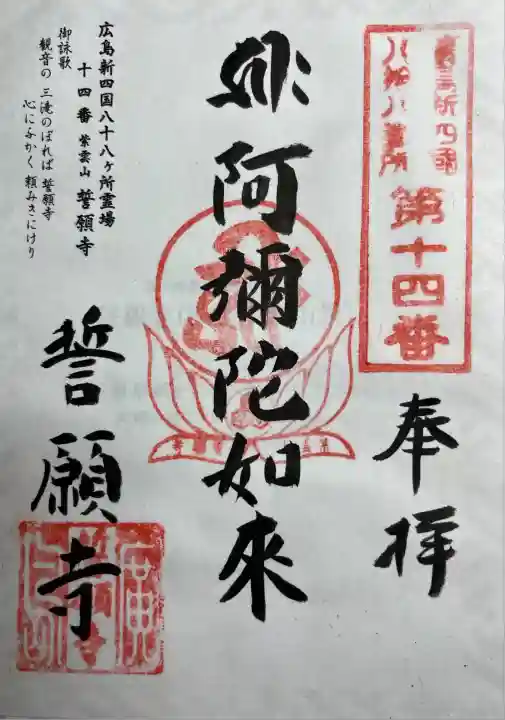 第十四番
奉拝
阿彌陀如來
広島新四国八十八ヶ所霊場
十四番 紫雲山 誓願寺
御詠歌
観音の 三滝のぼれば 誓願寺
心にふかく 頼みきにけり
誓願寺